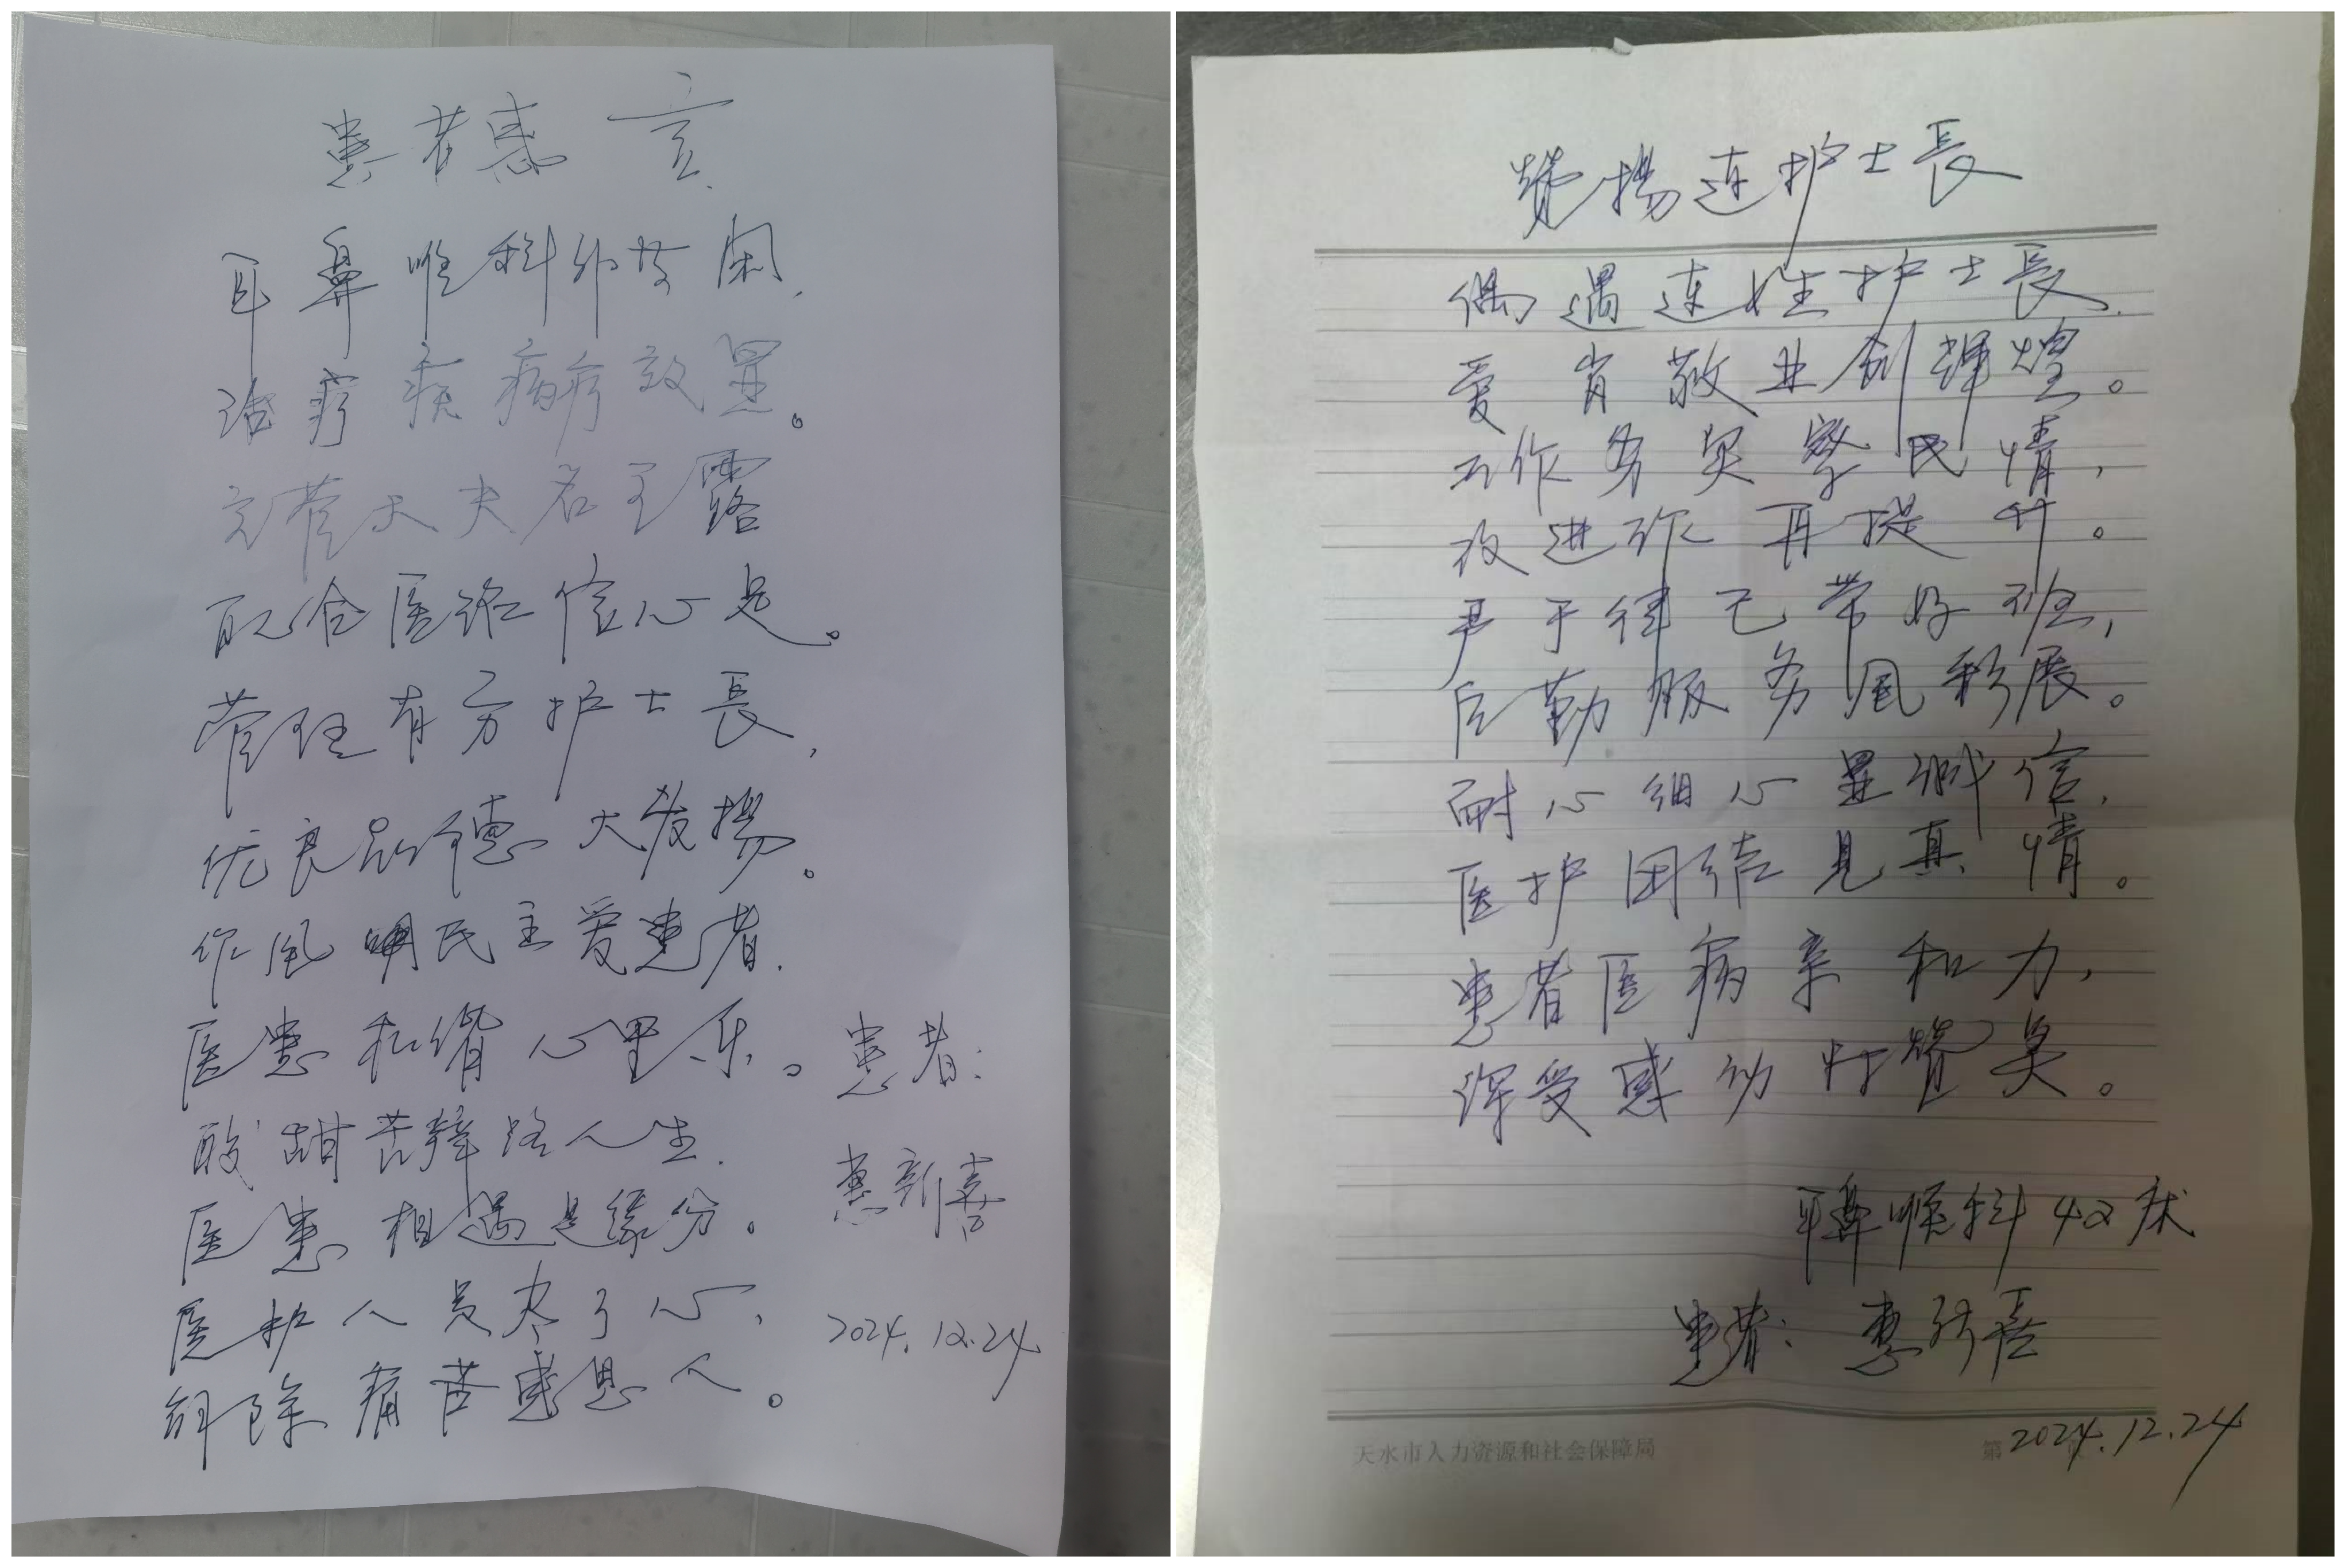 患者感言
耳鼻喉科
治疗疾病疗效显。
主管大夫名王露
配合医治信心足。
管理有方护士長,
优良品德大发揚。
作风民主爱患者.
医患和谐心里乐。
酸甜苦辣路人生.
医患相遇是缘分。
医护人员尽了心,
解除痛苦感恩人。
患者:
惠新喜
2024.12.24
赞揚连护士長
偶遇连姓护士長.
爱岗敬业创辉煌。
工作务实察民情,
改进作再提升。
严于律己带好班,
后勤服务风彩展。
耐心细心显诚信,
医护团结见真情。
患者医病亲和力,
深受感动付赞美。
耳鼻喉科42床
患者:惠新喜
2024.12.24
天水市人力资源和社会保障局
第